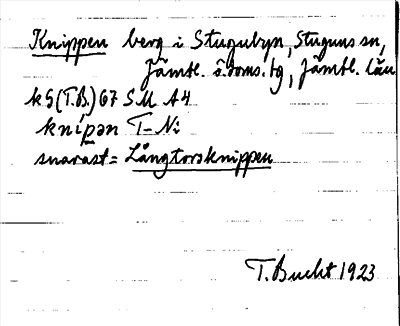 Knippen berg i Stugubyn, Stuguns sn,
Jämtl. ö. doms. tg, Jämtl. län
k5 (T.B.) 67 SM A4
knipən T-Ni
snarast = Långtorsknippen
T. Bucht 1923